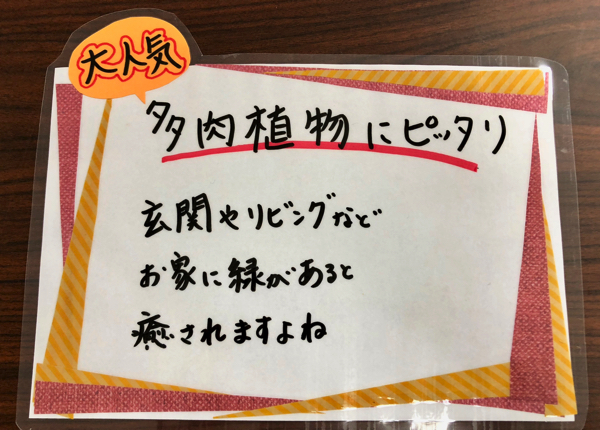 大人気
多肉植物にピッタリ
玄関やリビングなど
お家に緑があると
癒されますよね